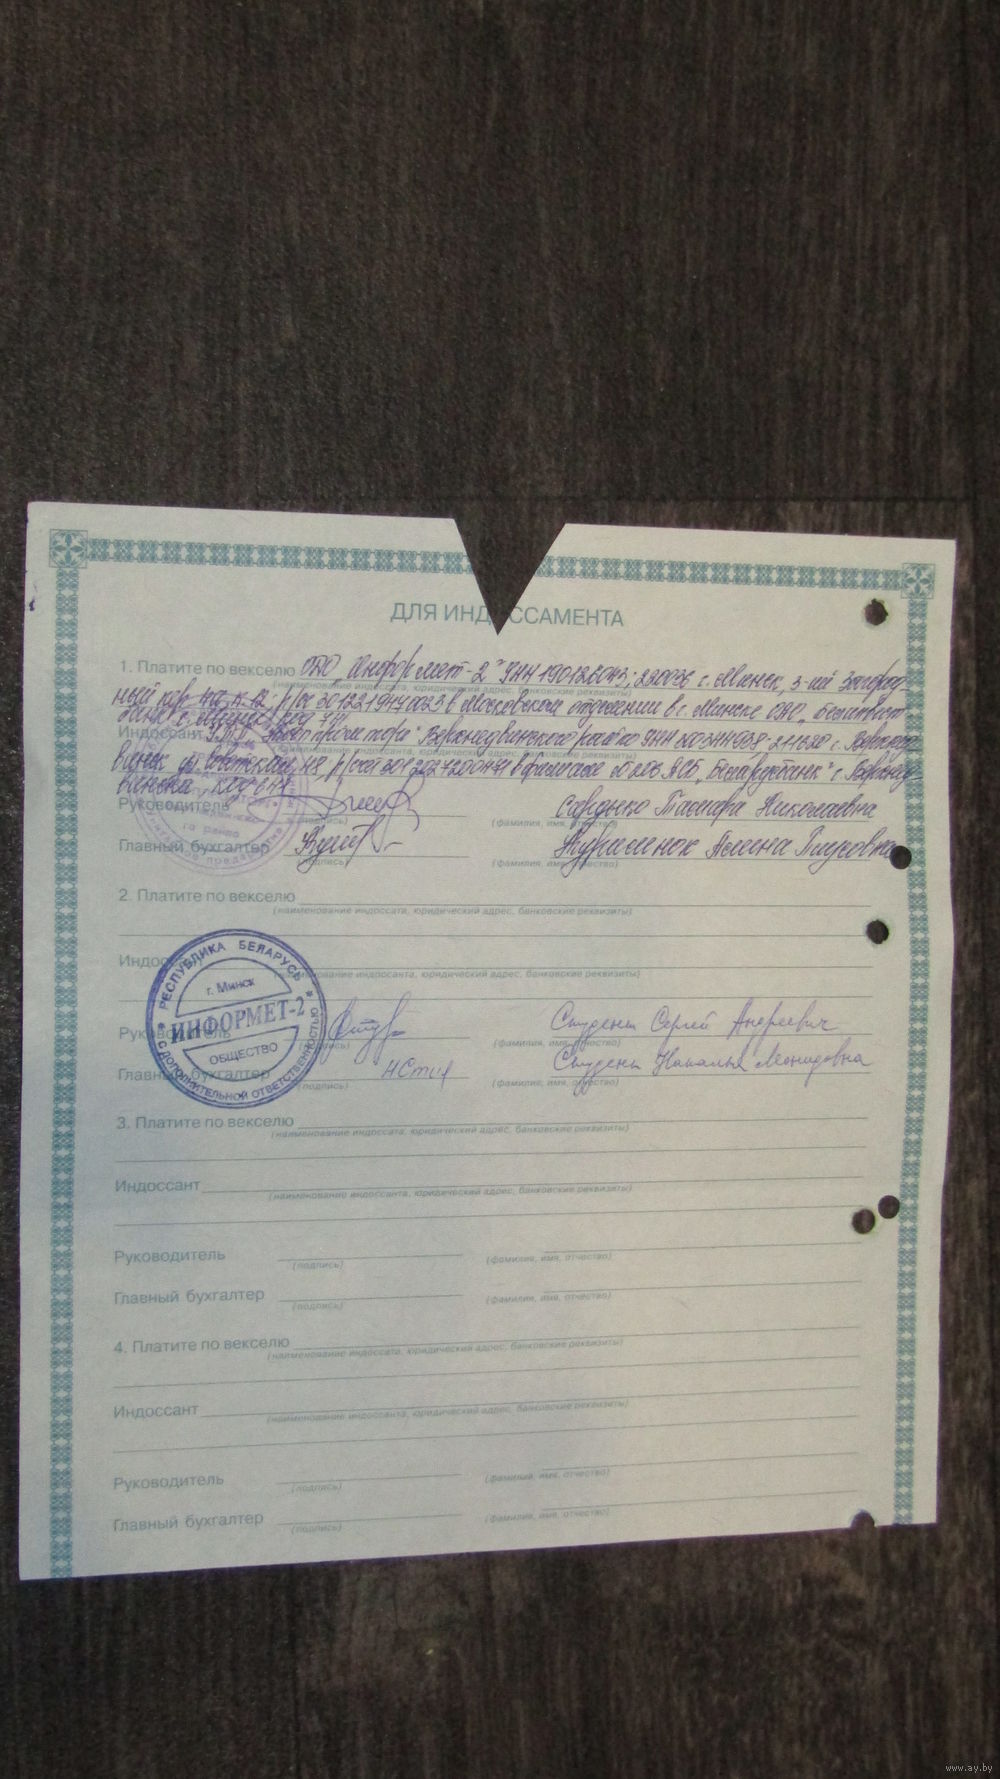 ДЛЯ ИНДОССАМЕНТА
1. Платите по векселю ОДО „Информет-2" УНН 190126043; 220036 г. Минск, 3-ий Загород-
(наименование индоссата, юридический адрес, банковские реквизиты)
ный пер. 4а, к. 12; р/сч 3012219470023 в Московском отделении в г. Минске ОАО „Белинвест
банк" г. Минск код
Индоссант Верхнедвинского райпо УНН 211620 г. Верхнед
(наименование индоссанта, юридический адрес, банковские реквизиты)
винск ул. Советская, р/счет 3012027200471 в филиале №206 АСБ „Беларусбанк" г. Верхнед
винска код
Руководитель Николаевна
(подпись) (фамилия, имя, отчество)
Главный бухгалтер
(подпись) (фамилия, имя, отчество)
2. Платите по векселю
(наименование индоссата, юридический адрес, банковские реквизиты)
Индос
наименование индоссанта, юридический адрес, банковские реквизиты)
РЕСПУБЛИКА БЕЛАРУСЬ
г. Минск
ИНФОРМЕТ-2
ОБЩЕСТВО
С ДОПОЛНИТЕЛЬНОЙ ОТВЕТСТВЕННОСТЬЮ
Руководитель Студент Сергей Андреевич
(подпись) (фамилия, имя, отчество)
Главный бухгалтер Студент Наталья Леонидовна
(подпись) (фамилия, имя, отчество)
3. Платите по векселю
(наименование индоссата, юридический адрес, банковские реквизиты)
Индоссант
(наименование индоссанта, юридический адрес, банковские реквизиты)
Руководитель
(подпись) (фамилия, имя, отчество)
Главный бухгалтер
(подпись) (фамилия, имя, отчество)
4. Платите по векселю
(наименование индоссата, юридический адрес, банковские реквизиты)
Индоссант
(наименование индоссанта, юридический адрес, банковские реквизиты)
Руководитель
(подпись) (фамилия, имя, отчество)
Главный бухгалтер
(подпись) (фамилия, имя, отчество)
www.ay.by